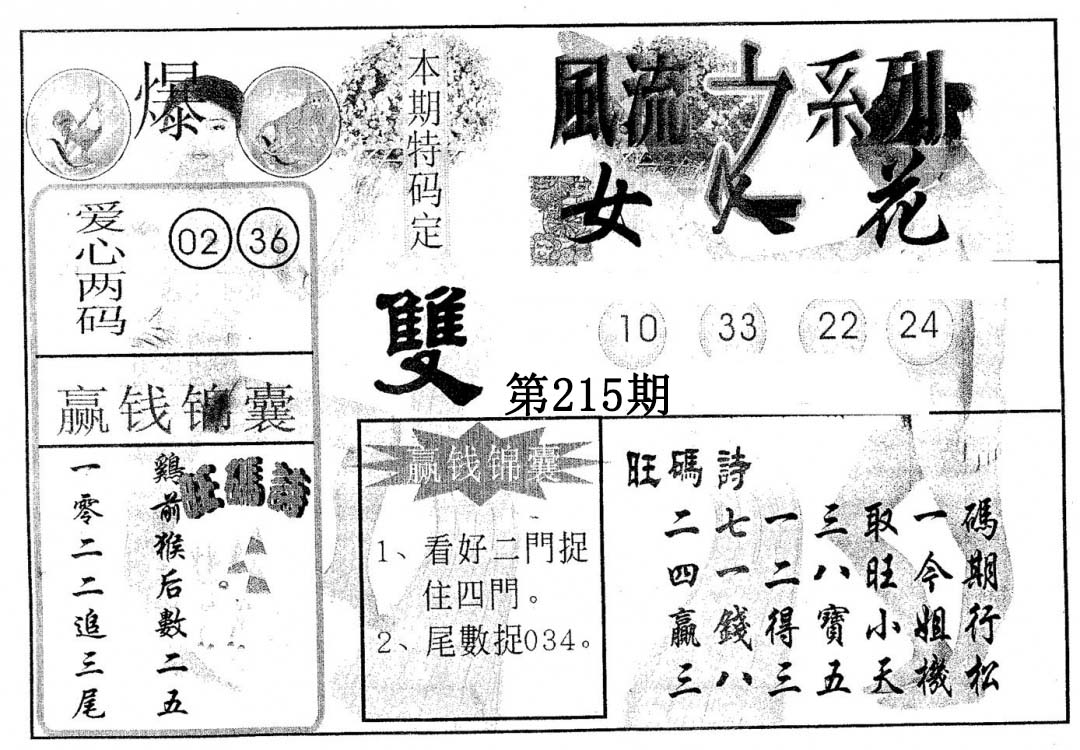 爆
本期特码定
雙
風流之系列
女人花
爱心两码
02 36
10 33 22 24
第215期
赢钱锦囊
旺碼詩
鷄前猴后數二五
一零二二追三尾
赢钱锦囊
1、看好二門捉
住四門。
2、尾數捉034。
旺碼詩
碼期行松
一今姐機
取旺小天
三八寶五
一二得三
七一錢八
二四贏三